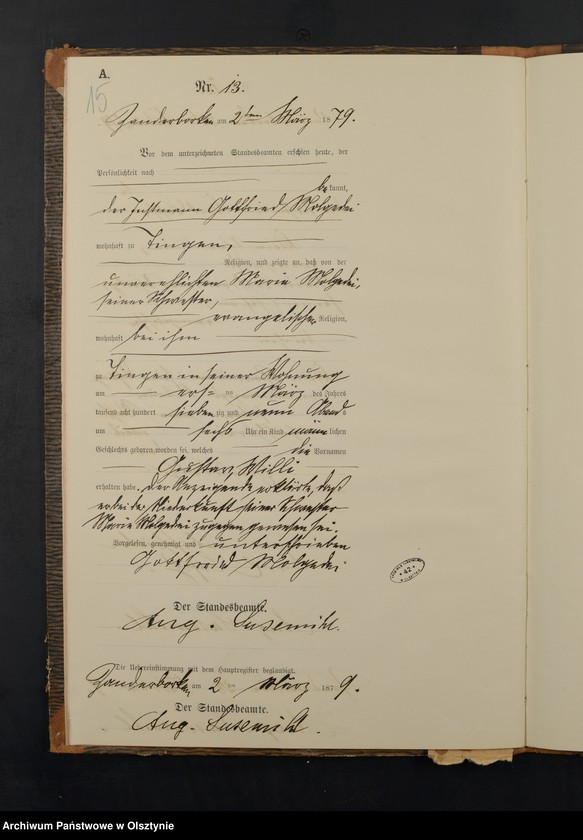 A.
15
Nr. 13.
Zanderborken am 2ten März 1879.
Vor dem unterzeichneten Standesbeamten erschien heute, der
Persönlichkeit nach
bekannt,
der Instmann Gottfried Molgedei
wohnhaft zu Tingen,
Religion, und zeigte an, daß von der
unverehlichten Marie Molgedei,
seiner Schwester,
evangelischer Religion,
wohnhaft bei ihm
zu Tingen in seiner Wohnung
am ersten März des Jahres
tausend acht hundert siebenzig und neun Abends
um sechs Uhr ein Kind männlichen
Geschlechts geboren worden sei, welches die Vornamen
Gustav Willi
erhalten habe. Der Anzeigende erklärte, daß
er bei der Niederkunft seiner Schwester
Marie Molgedei zugegen gewesen sei.
Vorgelesen, genehmigt und unterschrieben
Gottfried Molgedei
Der Standesbeamte.
Aug. Susemihl.
Die Uebereinstimmung mit dem Hauptregister beglaubigt.
Zanderborken am 2 März 1879.
Der Standesbeamte.
Aug. Susemihl.
42
Archiwum Państwowe w Olsztynie